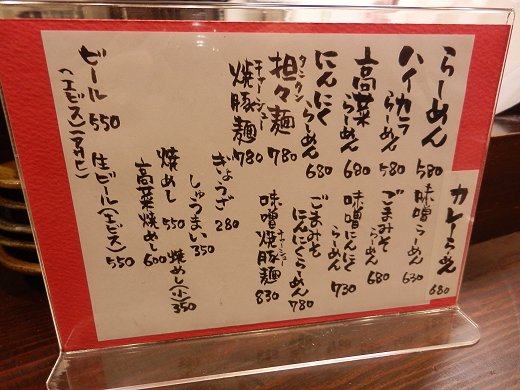 らーめん 580
ハイカラらーめん 580
高菜らーめん 680
にんにくらーめん 680
タンタン
担々麺 780
チャーシュー
焼豚麺 780
カレーらーめん 680
味噌らーめん 630
ごまみそらーめん 680
味噌にんにくらーめん 730
ごまみそにんにくらーめん 780
チャーシュー
味噌焼豚麺 830
ぎょうざ 280
しゅうまい 350
焼めし 550
高菜焼めし 600
焼めし(小) 350
ビール 550
(エビス)(アサヒ)
生ビール(エビス) 550